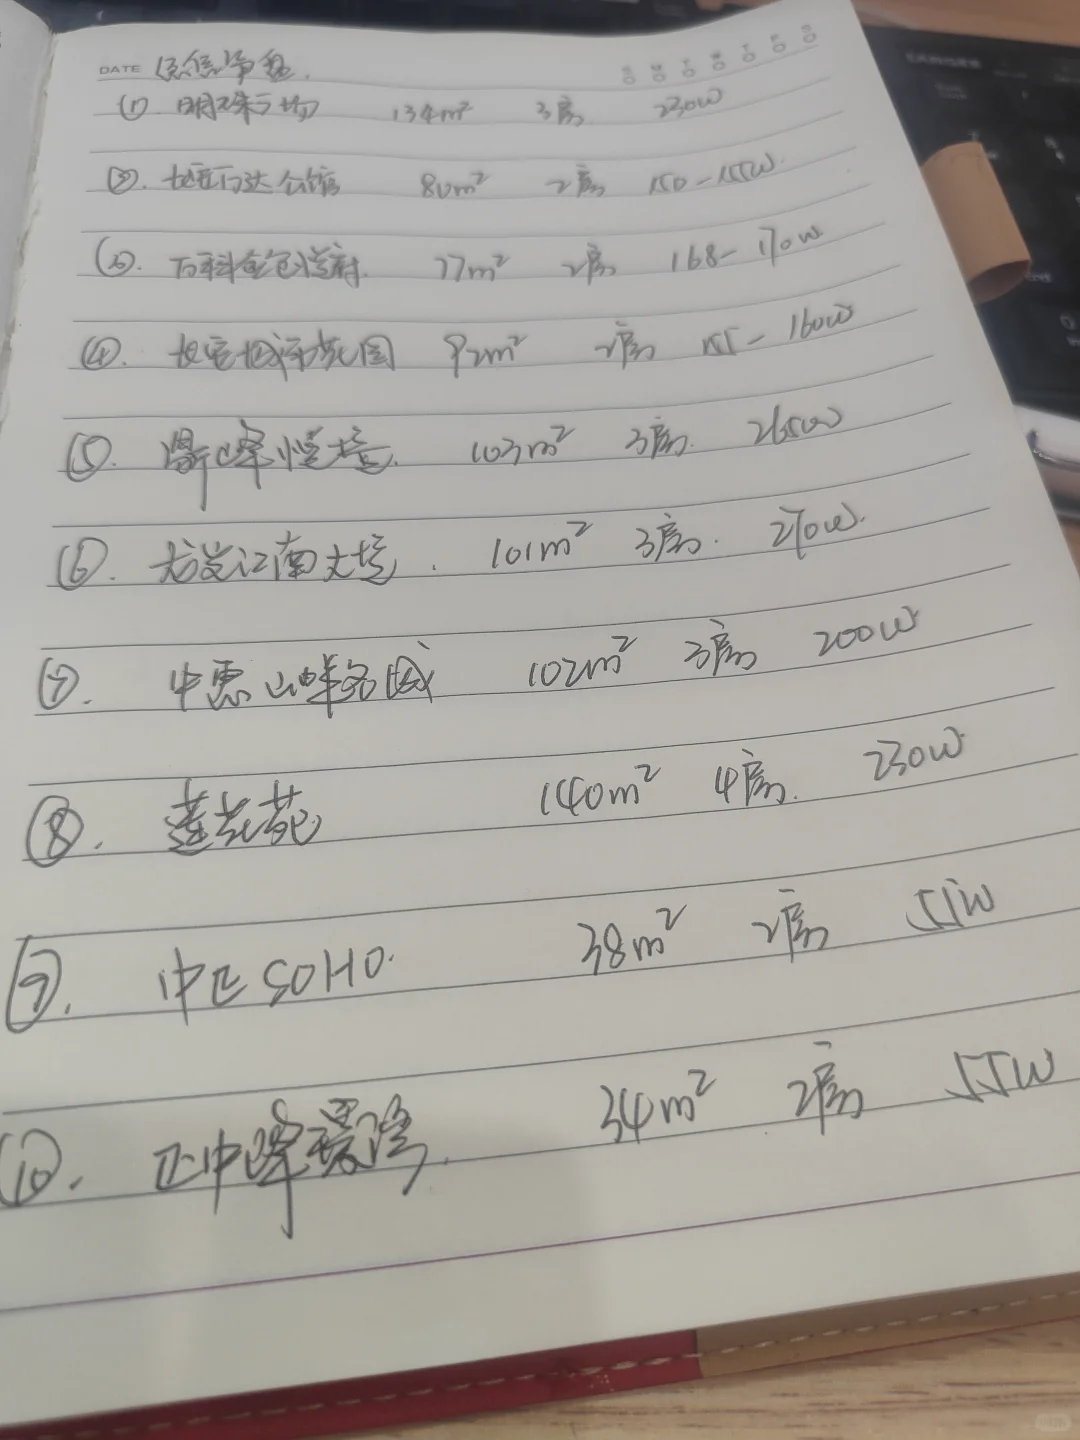 DATE
① 明珠广场 134m² 3房 230W
②. 万达公馆 80m² 2房 150-155W.
③. 万科金色悦府. 77m² 2房 168-170W
④. 长安城市花园 92m² 2房 155-160W
⑤. 鼎峰 103m² 3房. 265W
⑥. 龙光江南大境. 101m² 3房. 270W.
⑦. 中惠山畔名城 102m² 3房 200W
⑧. 莲花苑 140m² 4房. 230W
⑨. 中正SOHO. 38m² 2房 51W
⑩. 正中峰璟湾. 34m² 2房 55W